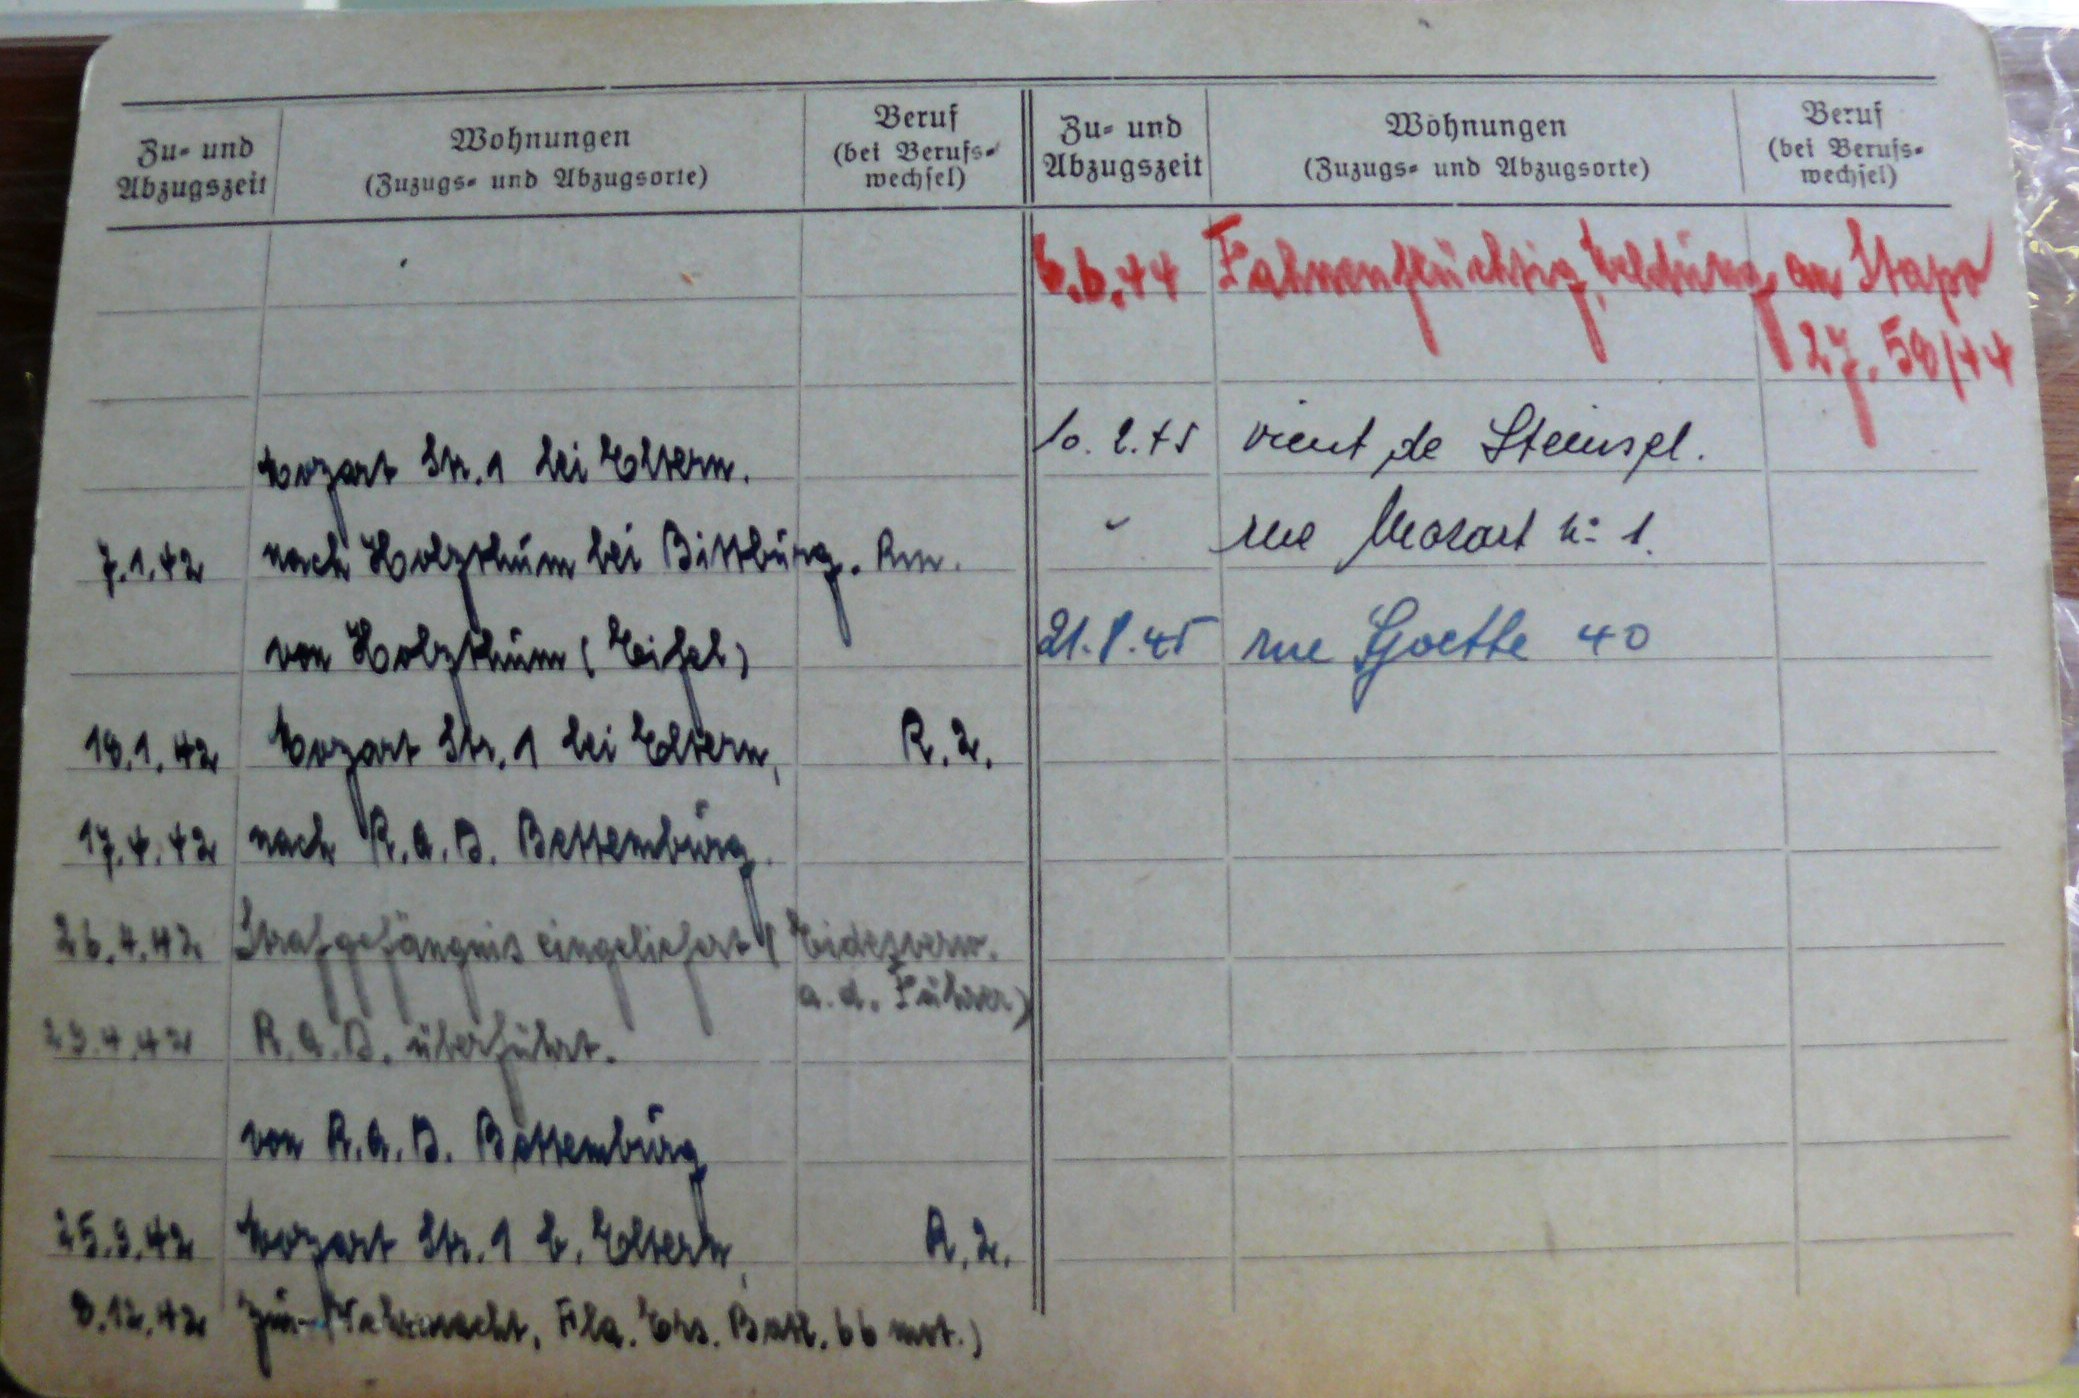 Zu- und
Abzugszeit
Wohnungen
(Zuzugs- und Abzugsorte)
Beruf
(bei Berufs-
wechsel)
Mozart Str. 1 bei Eltern.
7.1.42 nach Holzthum bei Bittburg. Rm.
von Holzthum (Eifel)
18.1.42 Mozart Str. 1 bei Eltern, R. 2.
17.4.42 nach R.A.D. Bettemburg.
26.4.42 Strafgefängnis eingeliefert (Eidesverw.
a. d. Führer)
29.4.42 R.A.D. überführt.
von R.A.D. Bettemburg
25.9.42 Mozart Str. 1 b. Eltern, R. 2.
8.12.42 zur Wehrmacht, Fla. Ers. Batl. 66 mot.)
Zu- und
Abzugszeit
Wohnungen
(Zuzugs- und Abzugsorte)
Beruf
(bei Berufs-
wechsel)
6.6.44 Fahnenflüchtig, Meldung an Stapo
27. 58/44
10.2.45 vient de Steinsel.
" rue Mozart No 1.
21.8.45 rue Goethe 40